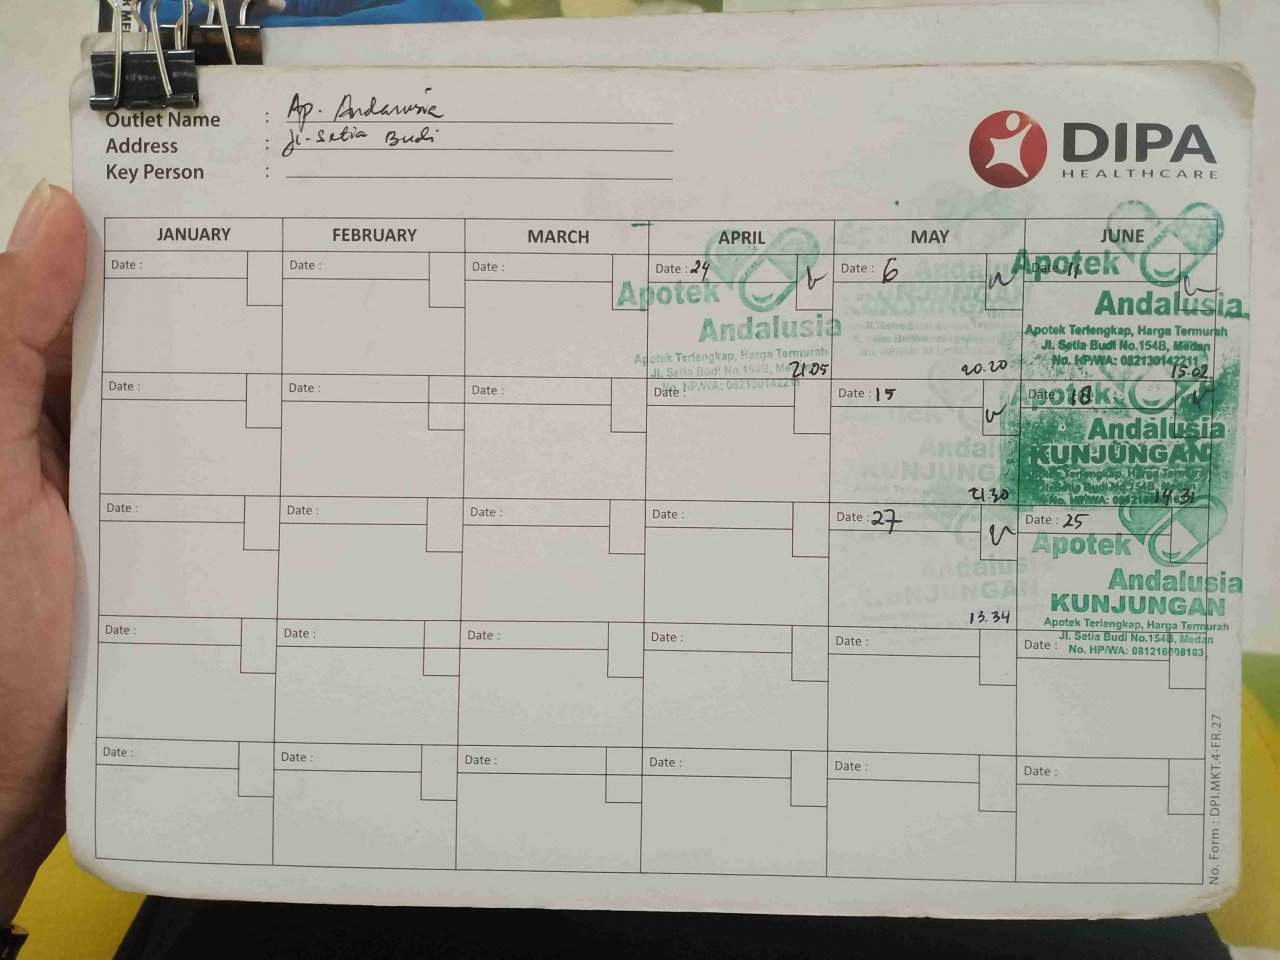 Outlet Name : Ap. Andalusia
Address : Jl. Setia Budi
Key Person :
DIPA
HEALTHCARE
JANUARY FEBRUARY MARCH APRIL MAY JUNE
Date : Date : Date : Date : 24 Date : 6 Date : 11
Apotek
Andalusia
Apotek Terlengkap, Harga Termurah
Jl. Setia Budi No.154B, Medan
No. HP/WA: 082130142211
21.05
20.20
Apotek
Andalusia
Apotek Terlengkap, Harga Termurah
Jl. Setia Budi No.154B, Medan
No. HP/WA: 082130142211
15.02
Date : Date : Date : Date : Date : 15 Date : 18
21.30
Apotek
Andalusia
KUNJUNGAN
14.31
Date : Date : Date : Date : Date : 27 Date : 25
13.34
Apotek
Andalusia
KUNJUNGAN
Apotek Terlengkap, Harga Termurah
Jl. Setia Budi No.154B, Medan
No. HP/WA: 081216008183
Date : Date : Date : Date : Date : Date :
Date : Date : Date : Date : Date : Date :
No. Form : DPI.MKT.4-FR.27